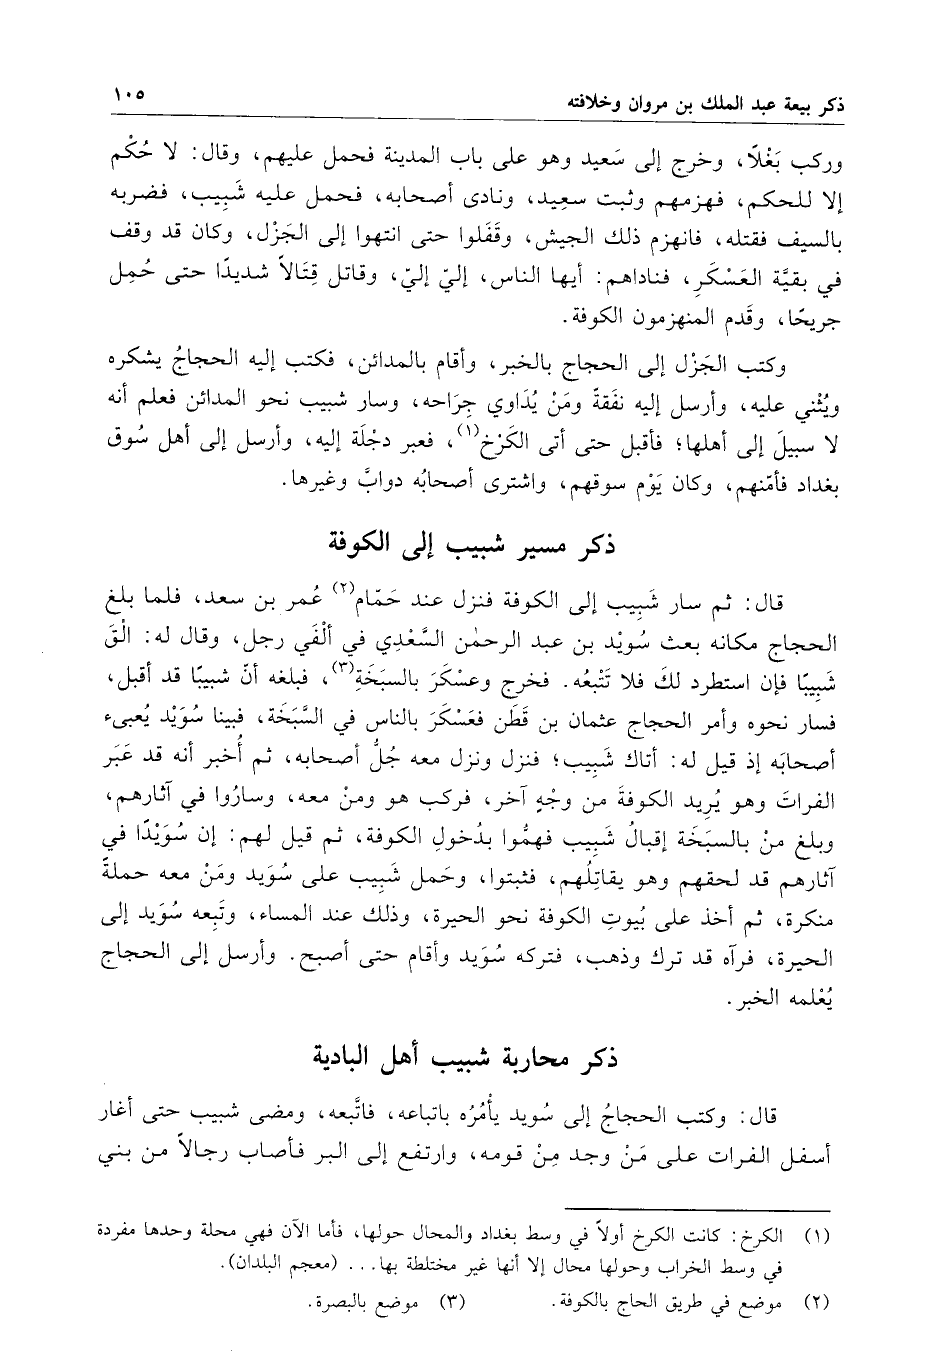 ذكر بيعة عبد الملك بن مروان وخلافته ١٠٥
وركب بَغْلًا، وخرج إلى سَعيد وهو على باب المدينة فحمل عليهم، وقال: لا حُكْم
إلا للحكم، فهزمهم وثبت سعِيد، ونادى أصحابه، فحمل عليه شَبِيب، فضربه
بالسيف فقتله، فانهزم ذلك الجيش، وقَفَلوا حتى انتهوا إلى الجَزْل، وكان قد وقف
في بقيَّة العَسْكَرِ، فناداهم: أيها الناس، إليّ إليّ، وقاتل قِتَالاً شديدًا حتى حُمِل
جريحًا، وقَدم المنهزمون الكوفة.
وكتب الجَزْل إلى الحجاج بالخبر، وأقام بالمدائن، فكتب إليه الحجاجُ يشكره
ويُثْني عليه، وأرسل إليه نفَقةً ومَنْ يُدَاوي جِرَاحه، وسار شبيب نحو المدائن فعلم أنه
لا سبيلَ إلى أهلها؛ فأقبل حتى أتى الكَرْخ(١)، فعبر دجْلَة إليه، وأرسل إلى أهل سُوق
بغداد فأمّنهم، وكان يَوْم سوقهم، واشترى أصحابُه دوابَّ وغيرها.
ذكر مسير شبيب إلى الكوفة
قال: ثم سار شَبِيب إلى الكوفة فنزل عند حَمّام(٢) عُمر بن سعد، فلما بلغ
الحجاج مكانه بعث سُويْد بن عبد الرحمٰن السَّعْدِي في ألْفَي رجل، وقال له: الْقَ
شَبِيبًا فإن استطرد لكَ فلا تَتْبعُه. فخرج وعسْكَرَ بالسبَخَةِ(٣)، فبلغه أنّ شبيبًا قد أقبل،
فسار نحوه وأمر الحجاج عثمان بن قَطَن فعَسْكَرَ بالناس في السَّبَخَة، فبينا سُوَيْد يُعبىء
أصحابَه إذ قيل له: أتاك شَبِيب؛ فنزل ونزل معه جُلُّ أصحابه، ثم أُخبر أنه قد عَبَر
الفراتَ وهو يُريد الكوفةَ من وجْهٍ آخر، فركب هو ومنْ معه، وسارُوا في آثارهم،
وبلغ منْ بالسبَخَة إقبالُ شَبِيب فهمُّوا بدُخولِ الكوفة، ثم قيل لهم: إن سُوَيْدًا في
آثارهم قد لحقهم وهو يقاتِلُهم، فثبتوا، وحَمل شَبِيب على سُوَيد ومَنْ معه حملةً
منكرة، ثم أخذ على بُيوتِ الكوفة نحو الحيرة، وذلك عند المساء، وتَبِعه سُوَيد إلى
الحيرة، فرآه قد ترك وذهب، فتركه سُوَيد وأقام حتى أصبح. وأرسل إلى الحجاج
يُعْلمه الخبر.
ذكر محاربة شبيب أهل البادية
قال: وكتب الحجاجُ إلى سُويد يأْمُرُه باتباعه، فاتَّبعه، ومضى شبيب حتى أغار
أسفل الفرات على مَنْ وجد مِنْ قومه، وارتفع إلى البر فأصاب رجالاً من بني
(١) الكرخ: كانت الكرخ أولاً في وسط بغداد والمحال حولها، فأما الآن فهي محلة وحدها مفردة
في وسط الخراب وحولها محال إلا أنها غير مختلطة بها... (معجم البلدان).
(٢) موضع في طريق الحاج بالكوفة. (٣) موضع بالبصرة.